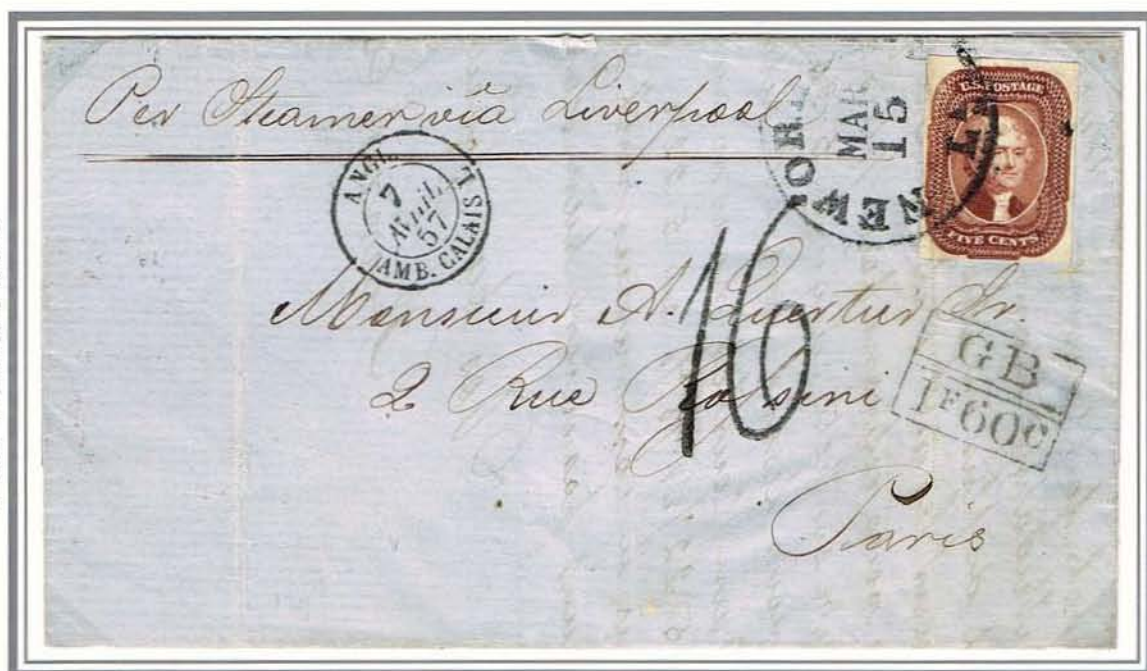 Per Steamer via Liverpool
NEW-OR
LA
MAR
15
U.S. POSTAGE
FIVE CENTS
ANGL.
7
AVRIL
57
AMB. CALAIS
16
Monsieur A. Quertier Sr.
2 Rue Rossini
Paris
GB
1F60C